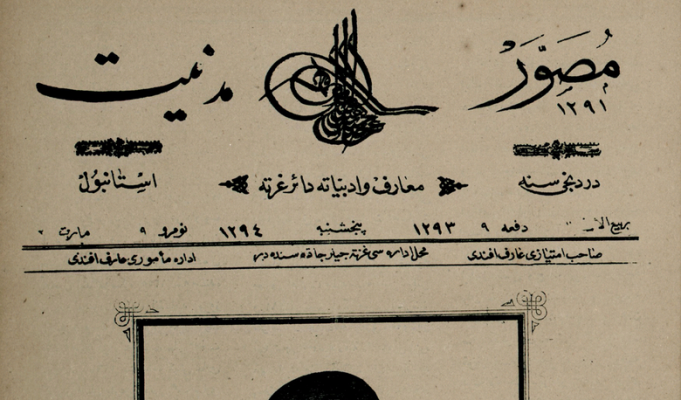 مُصَوَّرْ مدنیت
١٢٩١
دردنجی سنه معارف وادبیاته دائر غزته استانبول
ربیع الا دفعه ٩ ١٢٩٣ پنجشنبه ١٢٩٤ نومرو ٩ مارت
صاحب امتیازی عارف افندی محل اداره سی غزته جیلر جاده سنده در اداره مأموری عارف افندی